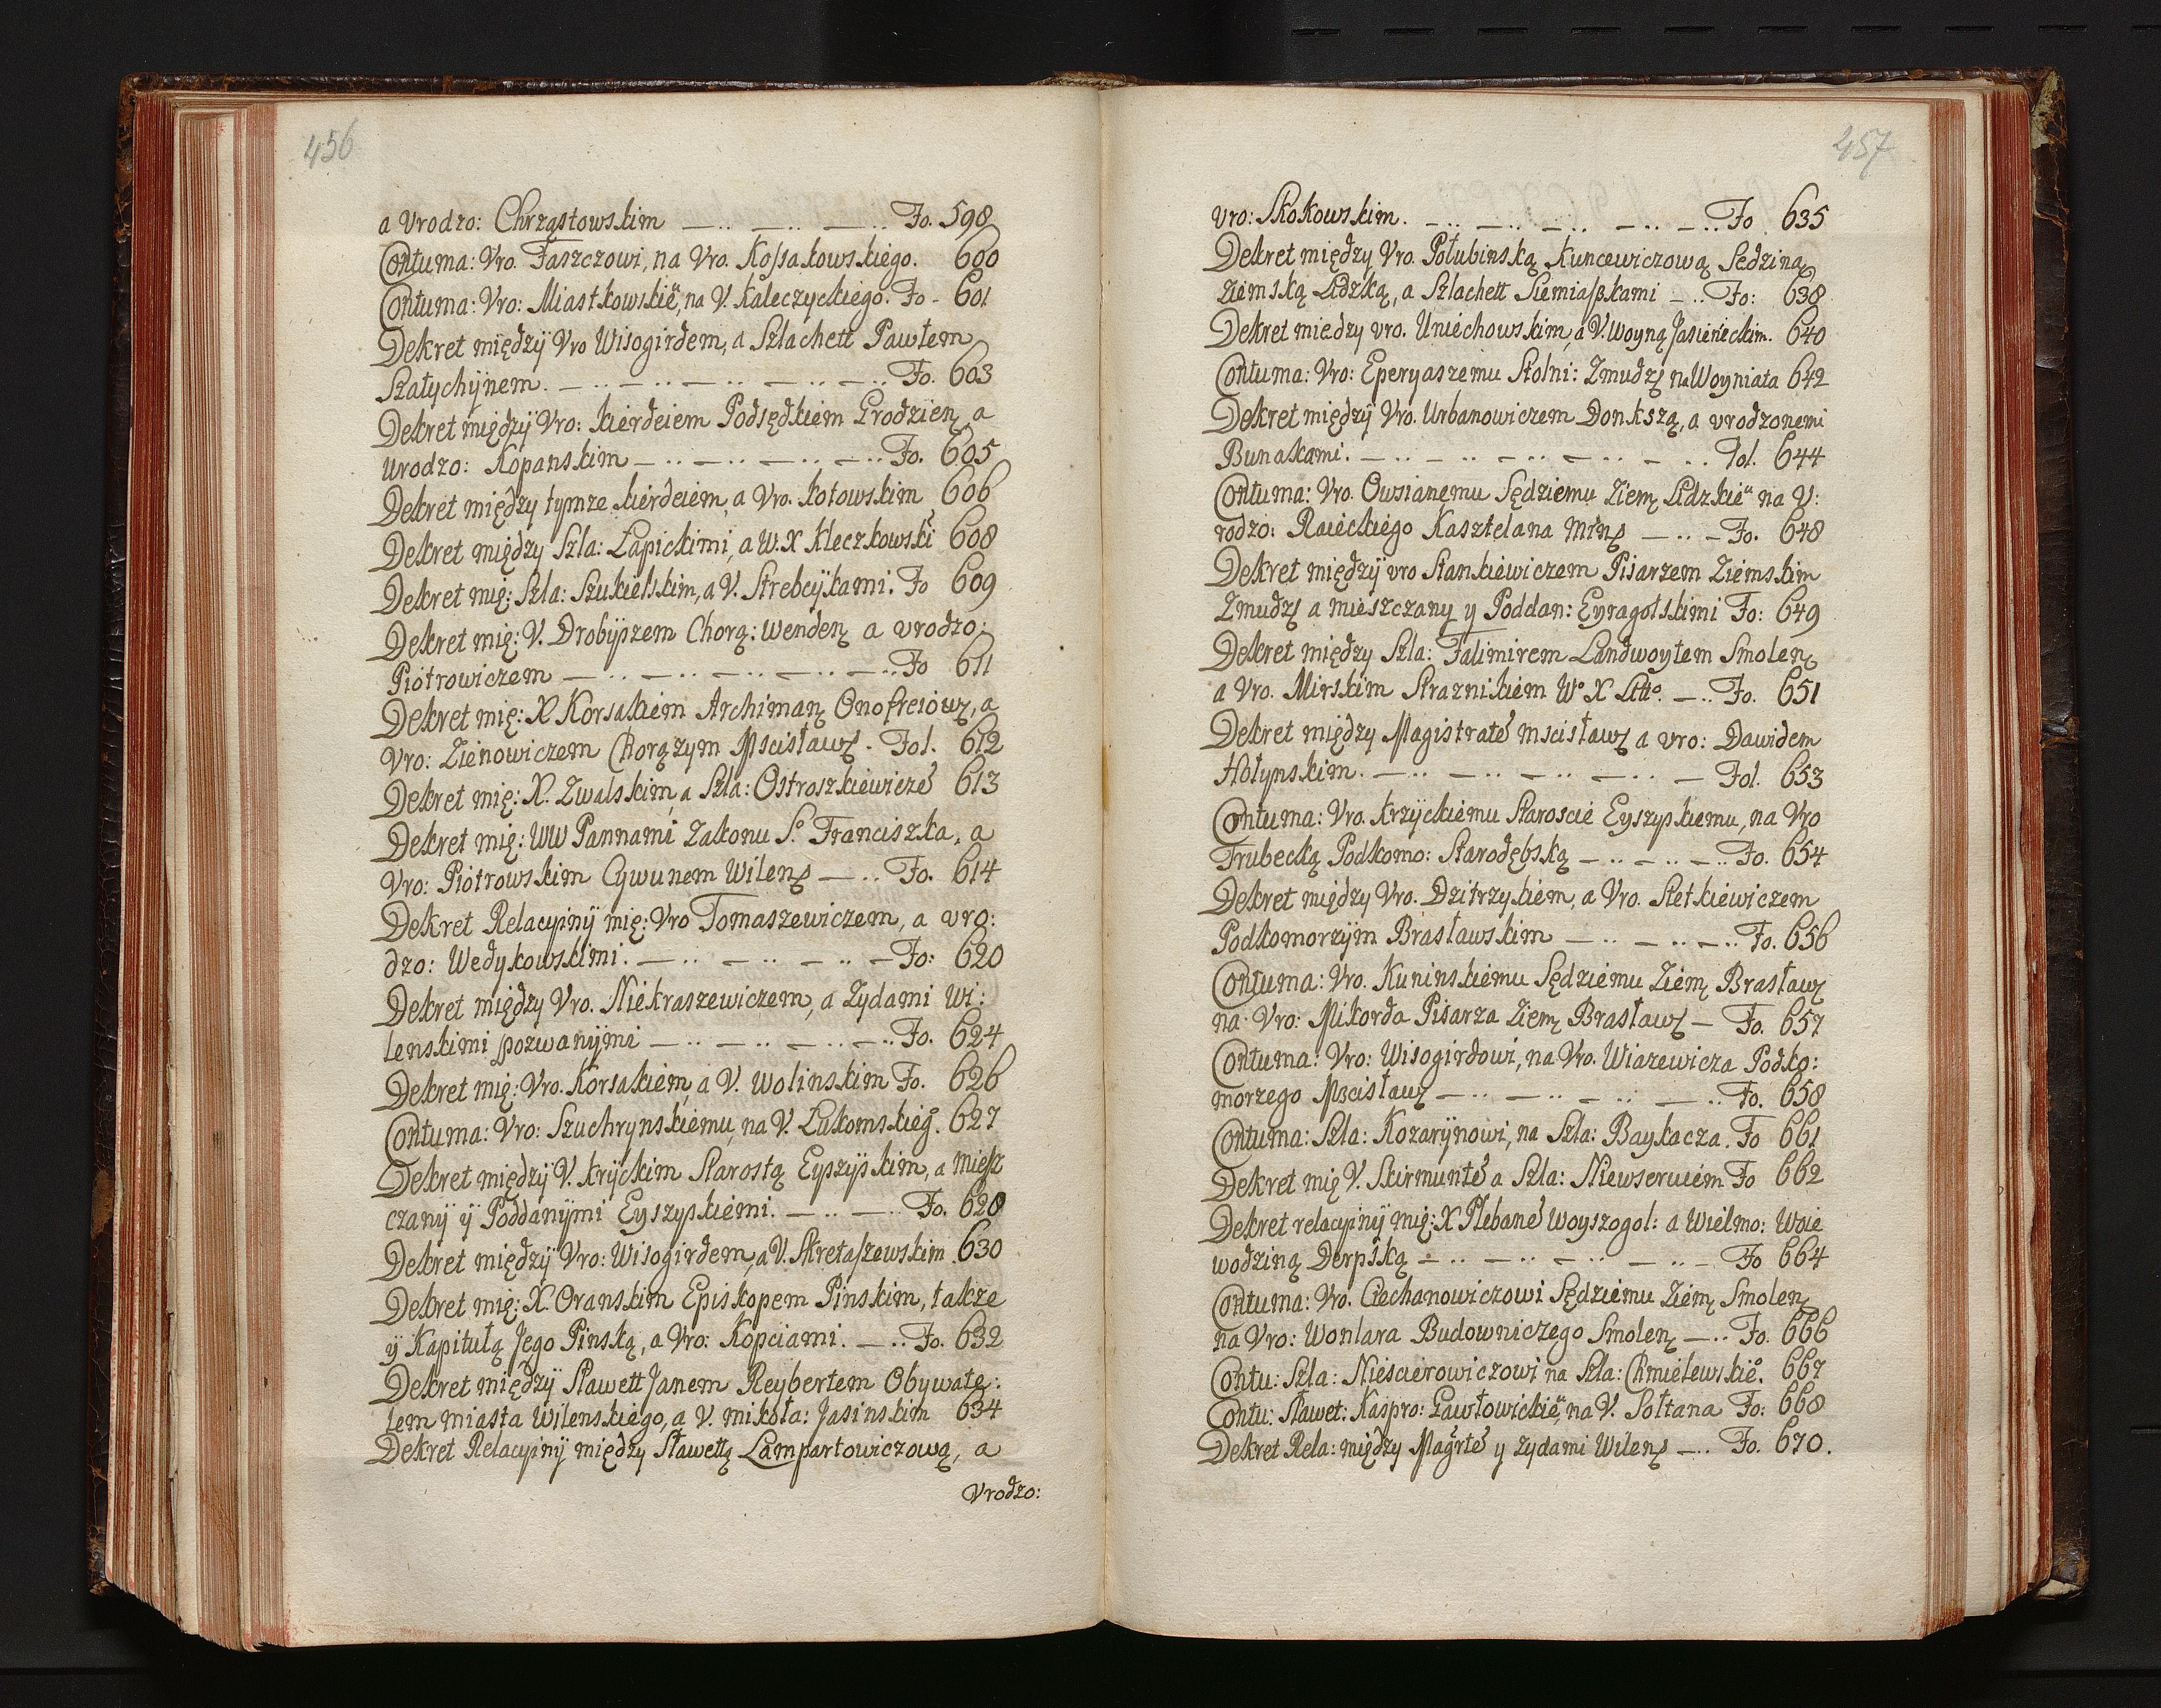 456
a Vrodzo: Chrząstowskim — .. — .. — .. Fo. 598
Contuma: Vro. Faszczowi, na Vro. Kossakowskiego. 600
Contuma: Vro: Miastkowskiē, na V. Kaleczyckiego. Fo - 601
Dekret międzÿ Vro Wisogirdem, a Szlachett Pawłem
Szatychÿnem. — .. — .. — .. — .. — .. Fo. 603
Dekret międzÿ Vro: kierdeiem Podsędkiem Grodzien, a
urodzo: Kopanskim — .. — .. — .. — .. Fo. 605
Dekret między tymze kierdeiem, a Vro. kotowskim 606
Dekret między Szla: Łapickimi, a W. X Kleczkowski 608
Dekret mię: Szla: Szukielskim, a V. Strebeÿkami. Fo 609
Dekret mię: V. Drobÿszem Chorą: Wenden a vrodzo:
Piotrowiczem — .. — .. — .. — .. — .. Fo 611
Dekret mię: X Korsakiem Archiman Onofreiow, a
Vro: Zienowiczem Chorązym Mscisław. Fol. 612
Dekret mię: X. Zwalskim, a Szla: Ostroszkiewiczē 613
Dekret mię: WW Pannami zakonu S.º Franciszka, a
Vro: Piotrowskim Cywunem Wilens — .. Fo. 614
Dekret Relacyinÿ mię: Vro Tomaszewiczem, a vro:
dzo: Wedykowskimi. — .. — .. — .. — Fo: 620
Dekret między Vro. Niekraszewiczem, a Zydami Wi:
lenskimi pozwanÿmi — .. — .. — .. — .. Fo. 624
Dekret mię: Vro. Korsakiem, a V. Wolinskim Fo. 626
Contuma: Vro: Szuchrynskiemu, na V. Łukomskieg. 627
Dekret międzÿ V. krÿckim Starostą Eyszÿskim, a miesz
czanÿ ÿ Poddanÿmi Eyszyskiemi. — .. — .. Fo. 628
Dekret międzÿ Vro: Wisogirdem, a V. Skretaszewskim. 630
Dekret mię: X. Oranskim Episkopem Pinskim, takze
ÿ Kapitułą Jego Pinską, a Vro: Kopciami. — .. Fo. 632
Dekret międzÿ Sławett Janem Reybertem Obywate:
lem miasta Wilenskiego, a V. mikoła: Jasinskim 634
Dekret Relacyinÿ między Sławettą Lampartowiczową, a
Vrodzo:
457
vro: Skokowskim. — .. — .. — .. — .. — .. Fo. 635
Dekret między Vro. Połubinską Kuncewiczową Sedziną
ziemską Lidzką, a Szlachett Siemiaszkami — .. Fo: 638
Dekret miedzy vro. Uniechowskim, a V. Woyną Jasieneckim. 640
Contuma: Vro: Eperyaszemu Stolni: Zmudz na Woyniata 642
Dekret międzÿ Vro. Urbanowiczem Donkszą, a vrodzonemi
Bunakami. — .. — .. — .. — .. — .. Fol. 644
Contuma: Vro. Owsianemu Sędziemu Ziem Lidzkiē na V:
rodzo: Raieckiego Kasztelana Mins — .. — Fo. 648
Dekret międzÿ vro Stankiewiczem Pisarzem Ziemskim
Zmudz a mieszczany y Poddan: Eyragołskimi Fo: 649
Dekret między Szla: Falimirem Landwoytem Smolen
a Vro. Mirskim Straznikiem Wº X Littº. — .. Fo. 651
Dekret między Magistratē mscisław a vro: Dawidem
Hołynskim. — .. — .. — .. — .. — Fol. 653
Contuma: Vro. krzÿckiemu Staroscie Eyszyskiemu, na Vro
Trubecką Podkomo: Starodębską — .. — .. — .. Fo. 654
Dekret między Vro. Dzitrzykiem, a Vro. Stetkiewiczem
Podkomorzÿm Brasławskim — .. — .. — .. Fo. 656
Contuma: Vro. Kuninskiemu Sędziemu Ziem Brasław
na Vro: Mikorda Pisarza Ziem Brasław — Fo. 657
Contuma: Vro: Wisogirdowi, na Vro. Wiazewicza Podko:
morzego Mscisław — .. — .. — .. — .. Fo. 658
Contuma: Szla: Kozarÿnowi, na Szla: Baykacza. Fo 661
Dekret mię V. Skirmuntē a Szla: Niewseruiem Fo 662
Dekret relacyinÿ mię: X Plebanē Woyszogol: a Wielmo: Woie
wodziną Derpską — .. — .. — .. — .. — Fo 664
Contuma: Vro. Ciechanowiczowi Sędziemu Ziem Smolen
na Vro: Wonlara Budowniczego Smolen — .. Fo. 666
Contu: Szla: Niescierowiczowi na Szla: Chmielewskiē. 667
Contu: Sławet: Kaspro: Gawłowickiē, na V. Sołtana Fo: 668
Dekret Rela: między Magrtē y zydami Wilens — .. Fo. 670.